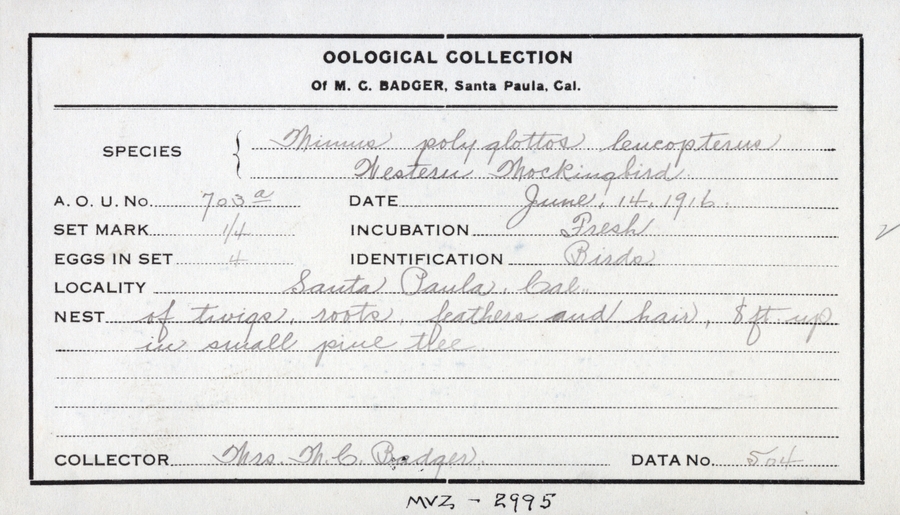 OOLOGICAL COLLECTION
Of M. C. BADGER, Santa Paula, Cal.
SPECIES { Mimus polyglottos leucopterus
Western Mockingbird
A. O. U. No. 703a DATE June, 14, 1916.
SET MARK 1/4 INCUBATION Fresh
EGGS IN SET 4 IDENTIFICATION Birds
LOCALITY Santa Paula, Cal.
NEST of twigs, roots, feathers and hair, 8 ft. up
in small pine tree
COLLECTOR Mrs. M. C. Badger. DATA No. 504
MVZ - 2995